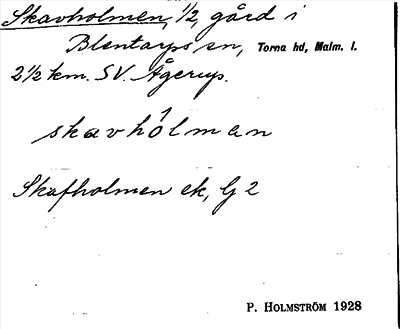 Skavholmen, 1/2, gård i
Blentarps sn, Torna hd, Malm. l.
2 1/2 km. SV. Ågerup.
skavhólmen
Skafholmen ek, G 2
P. HOLMSTRÖM 1928